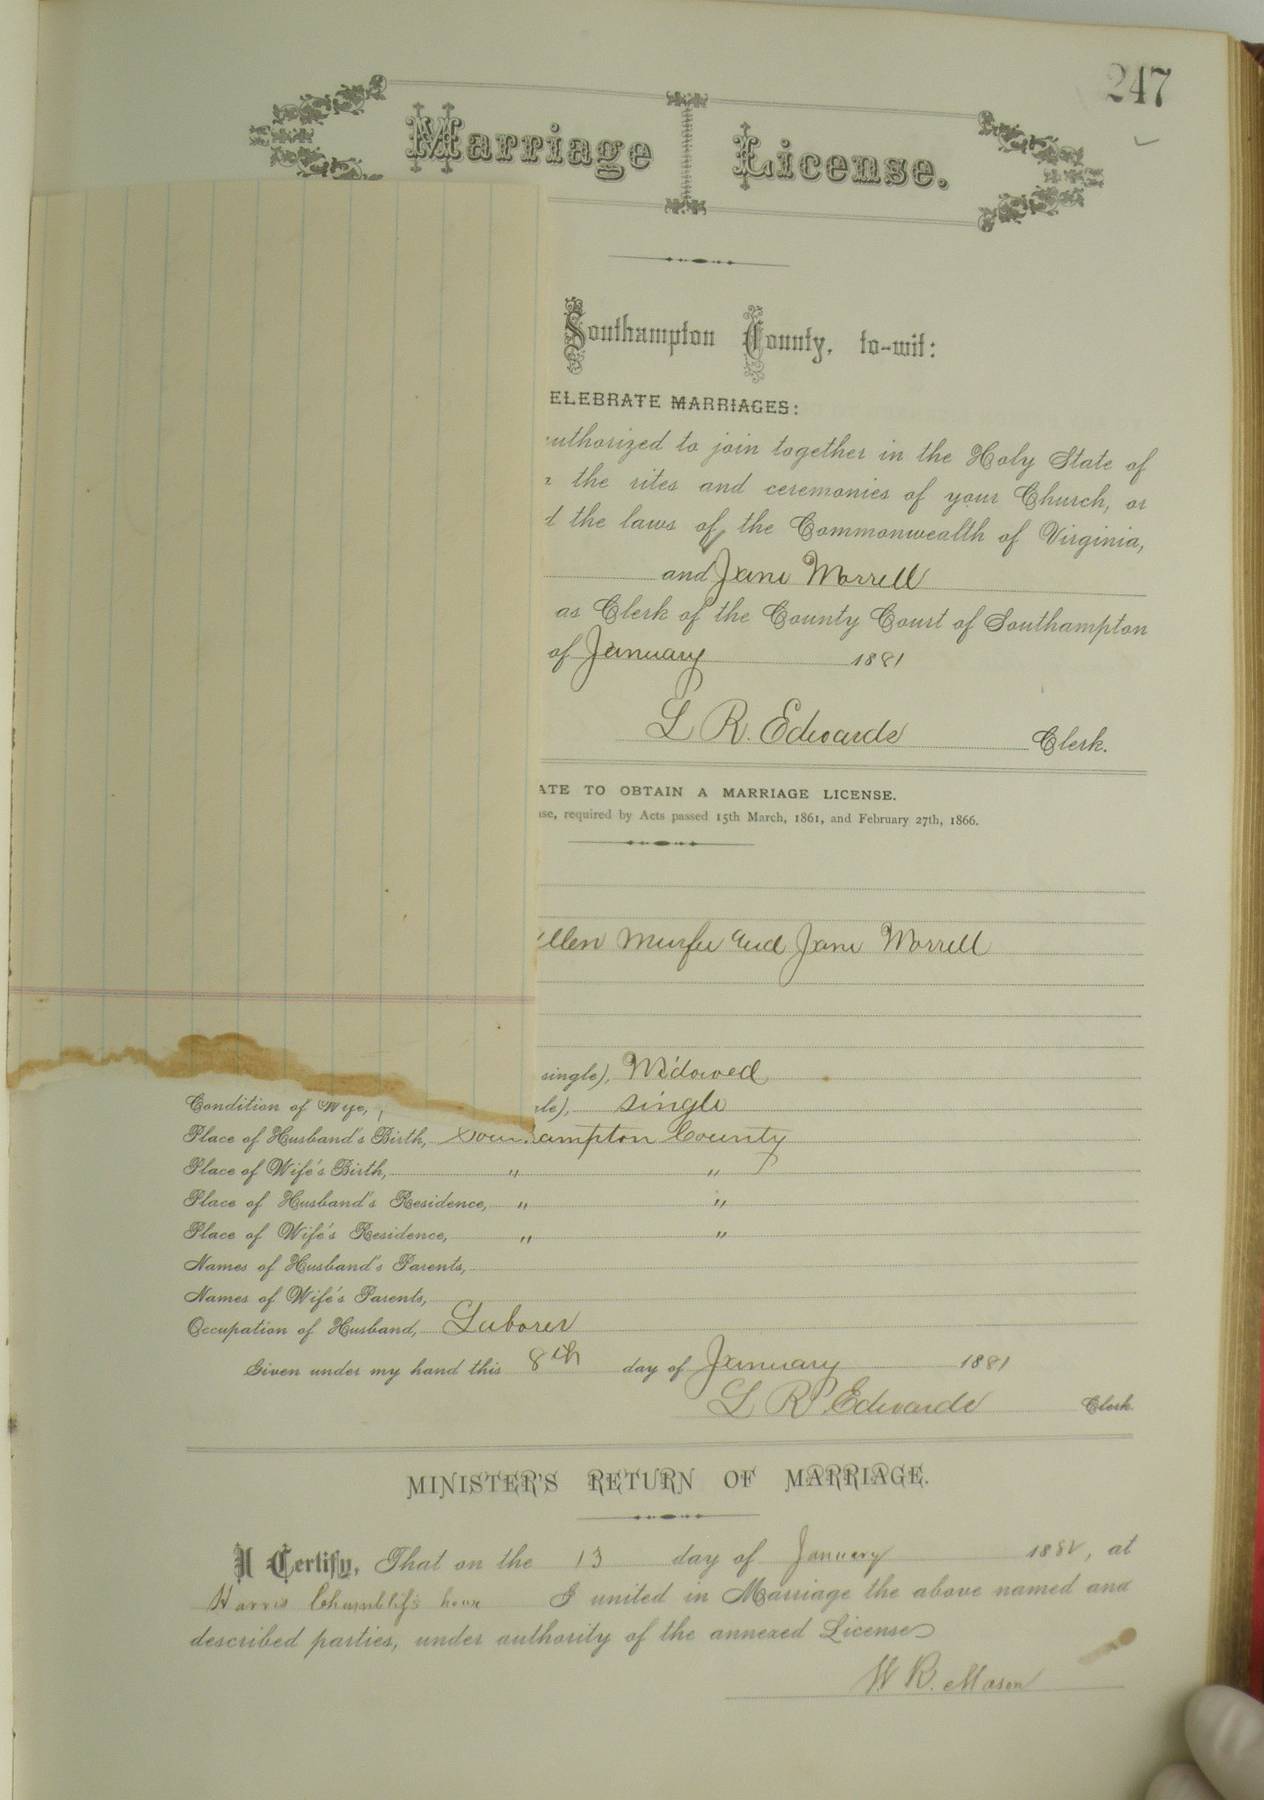 247
Marriage License.
Southampton County, to-wit:
ELEBRATE MARRIAGES:
uthorized to join together in the Holy State of
the rites and ceremonies of your Church, or
d the laws of the Commonwealth of Virginia,
and Jane Worrell
as Clerk of the County Court of Southampton
of January 1881
L R. Edwards Clerk.
ATE TO OBTAIN A MARRIAGE LICENSE.
nse, required by Acts passed 15th March, 1861, and February 27th, 1866.
ellen Murfee and Jane Worrell
single), Widowed
Condition of Wife, gle), single
Place of Husband's Birth, Southampton County
Place of Wife's Birth, " "
Place of Husband's Residence, " "
Place of Wife's Residence, " "
Names of Husband's Parents,
Names of Wife's Parents,
Occupation of Husband, Laborer
Given under my hand this 8th day of January 1881
L R Edwards Clerk
MINISTER'S RETURN OF MARRIAGE.
I Certify, That on the 13 day of January 188 , at
Harris I united in Marriage the above named and
described parties, under authority of the annexed License
W R. Mason